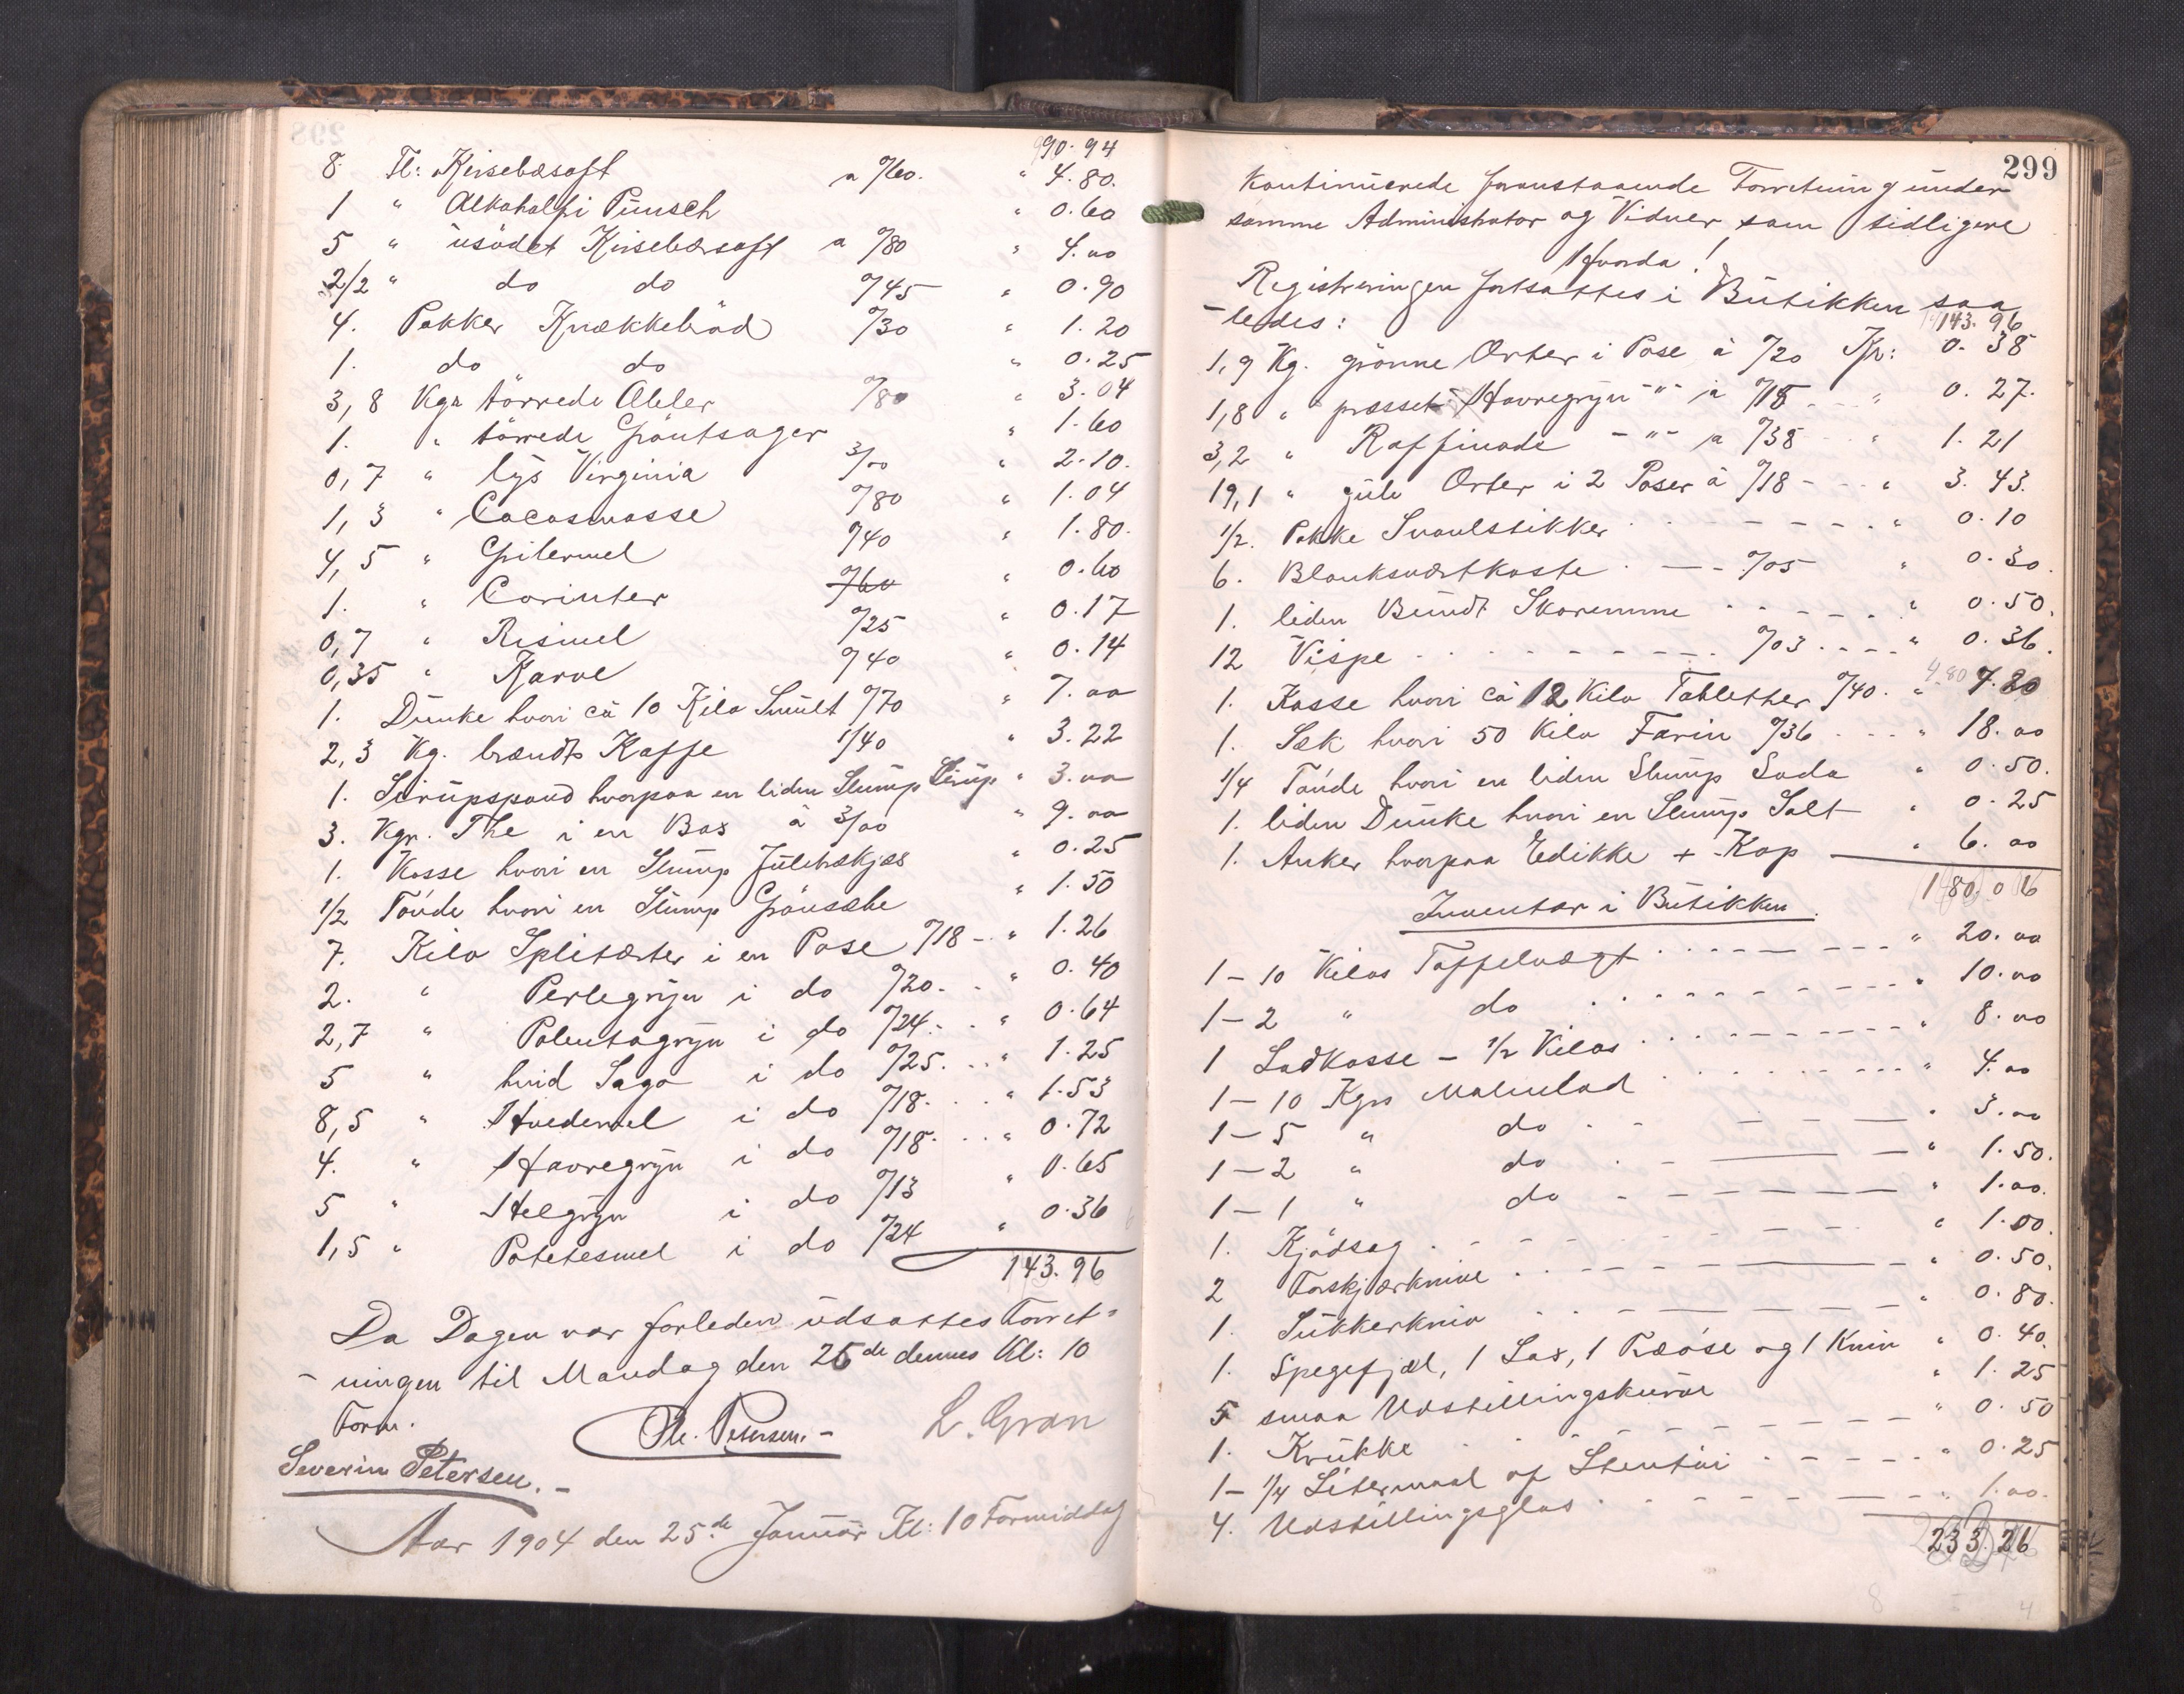 90.94
8 Fl: Kirsebæsaft a %60. " 4.80.
1 " Alkoholfri Punsch " 0.60
5 " usødet Kirsebærsaft a %80 " 4.00
2/2 " do do %45 " 0.90
4. Pakker Knækkebrød %30 " 1.20
1. do do " 0.25
3,8 Kgr tørrede Æbler %80 " 3.04
1. " tørrede Grøntsager " 1.60
0,7 " lys Virginia 3/00 " 2.10.
1,3 " Cacosmasse %80 " 1.04
4,5 " Gritermel %40 " 1.80.
1. " Corinter %60 " 0.60
0,7 " Rismel %25 " 0.17
0,35 " Karve %40 " 0.14
1. Dunke hvori ca 10 Kilo Smult %70 " 7.00
2,3 Kg. brændt Kaffe 1/40 " 3.22
1. Sirupspand hvorpaa en liden Slump Sirup " 3.00
3. Kgr. The i en Box à 3/00 " 9.00
1. Kasse hvori en Slump Julebækjes " 0.25
1/2 Tønde hvori en Slump Grønsæbe " 1.50
7. Kilo Splitærter i en Pose %18 - " 1.26
2. " Perlegryn i do %20. " 0.40
2,7 " Polentagryn i do %24. " 0.64
5 " hvid Sago i do %25. " 1.25
8,5 " Hvedemel i do %18. " 1.53
4. " Havregryn i do %18. " 0.72
5 " Helgryn i do %13 " 0.65
1,5 " Potetesmel i do %24 " 0.36
143.96
Da Dagen var forleden udsattes Forret-
-ningen til Mandag den 25de dennes Kl: 10
Form.
Chr. Petersen.- L. Gran
Severin Petersen.-
Aar 1904 den 25.de Januar Kl: 10 Formiddag
299
Kontinuerede foranstaaende Forretning under
samme Administrator og Vidner som tidligere
Hvorda!
Registreringen fortsattes i Butikken saa
-ledes: 143.96
1,9 Kg. grønne Erter i Pose à %20 Kr: 0.38
1,8 " presset Havregryn -"- à %15 " 0.27.
3,2 " Raffinade -"- a %38 " 1.21
19,1 " gule Erter i 2 Poser à %18 - " 3.43.
1/2. Pakke Svovlstikker " 0.10
6. Blanksværtkoste %05 " 0.30.
1. liden Bundt Skoremme " 0.50.
12 Vispe %03 " 0.36.
1. Kasse hvori ca 12 Kilo Tabletter %40. " 4.80
1. Sæk hvori 50 Kilo Farin %36 " 18.00
1/4 Tønde hvori en liden Slump Soda " 0.50.
1. liden Dunke hvori en Slump Salt " 0.25
1. Anker hvorpaa Edikke + Kop " 6.00
180.06
Inventar i Butikken.
1-10 Kilos Taffelvægt " 20.00
1-2 " do " 10.00
1 Lodkasse - 1/2 Kilos " 8.00
1-10 Kgrs Malmlod " 4.00
1-5 " do " 3.00
1-2 " do " 1.50.
1-1 " do " 1.00.
1. Kjødsag " 1.00.
2 Forskjærknive " 0.50.
1. Sukkerkniv " 0.80.
1. Spegefjæl, 1 Sax, 1 Træøse og 1 Kniv " 0.40.
5 smaa Udstillingskurve " 1.25
1. Krukke " 0.50
1-1/4 Litermaal af Stentøi " 0.25
4. Udstillingsglas " 1.00.
233.26